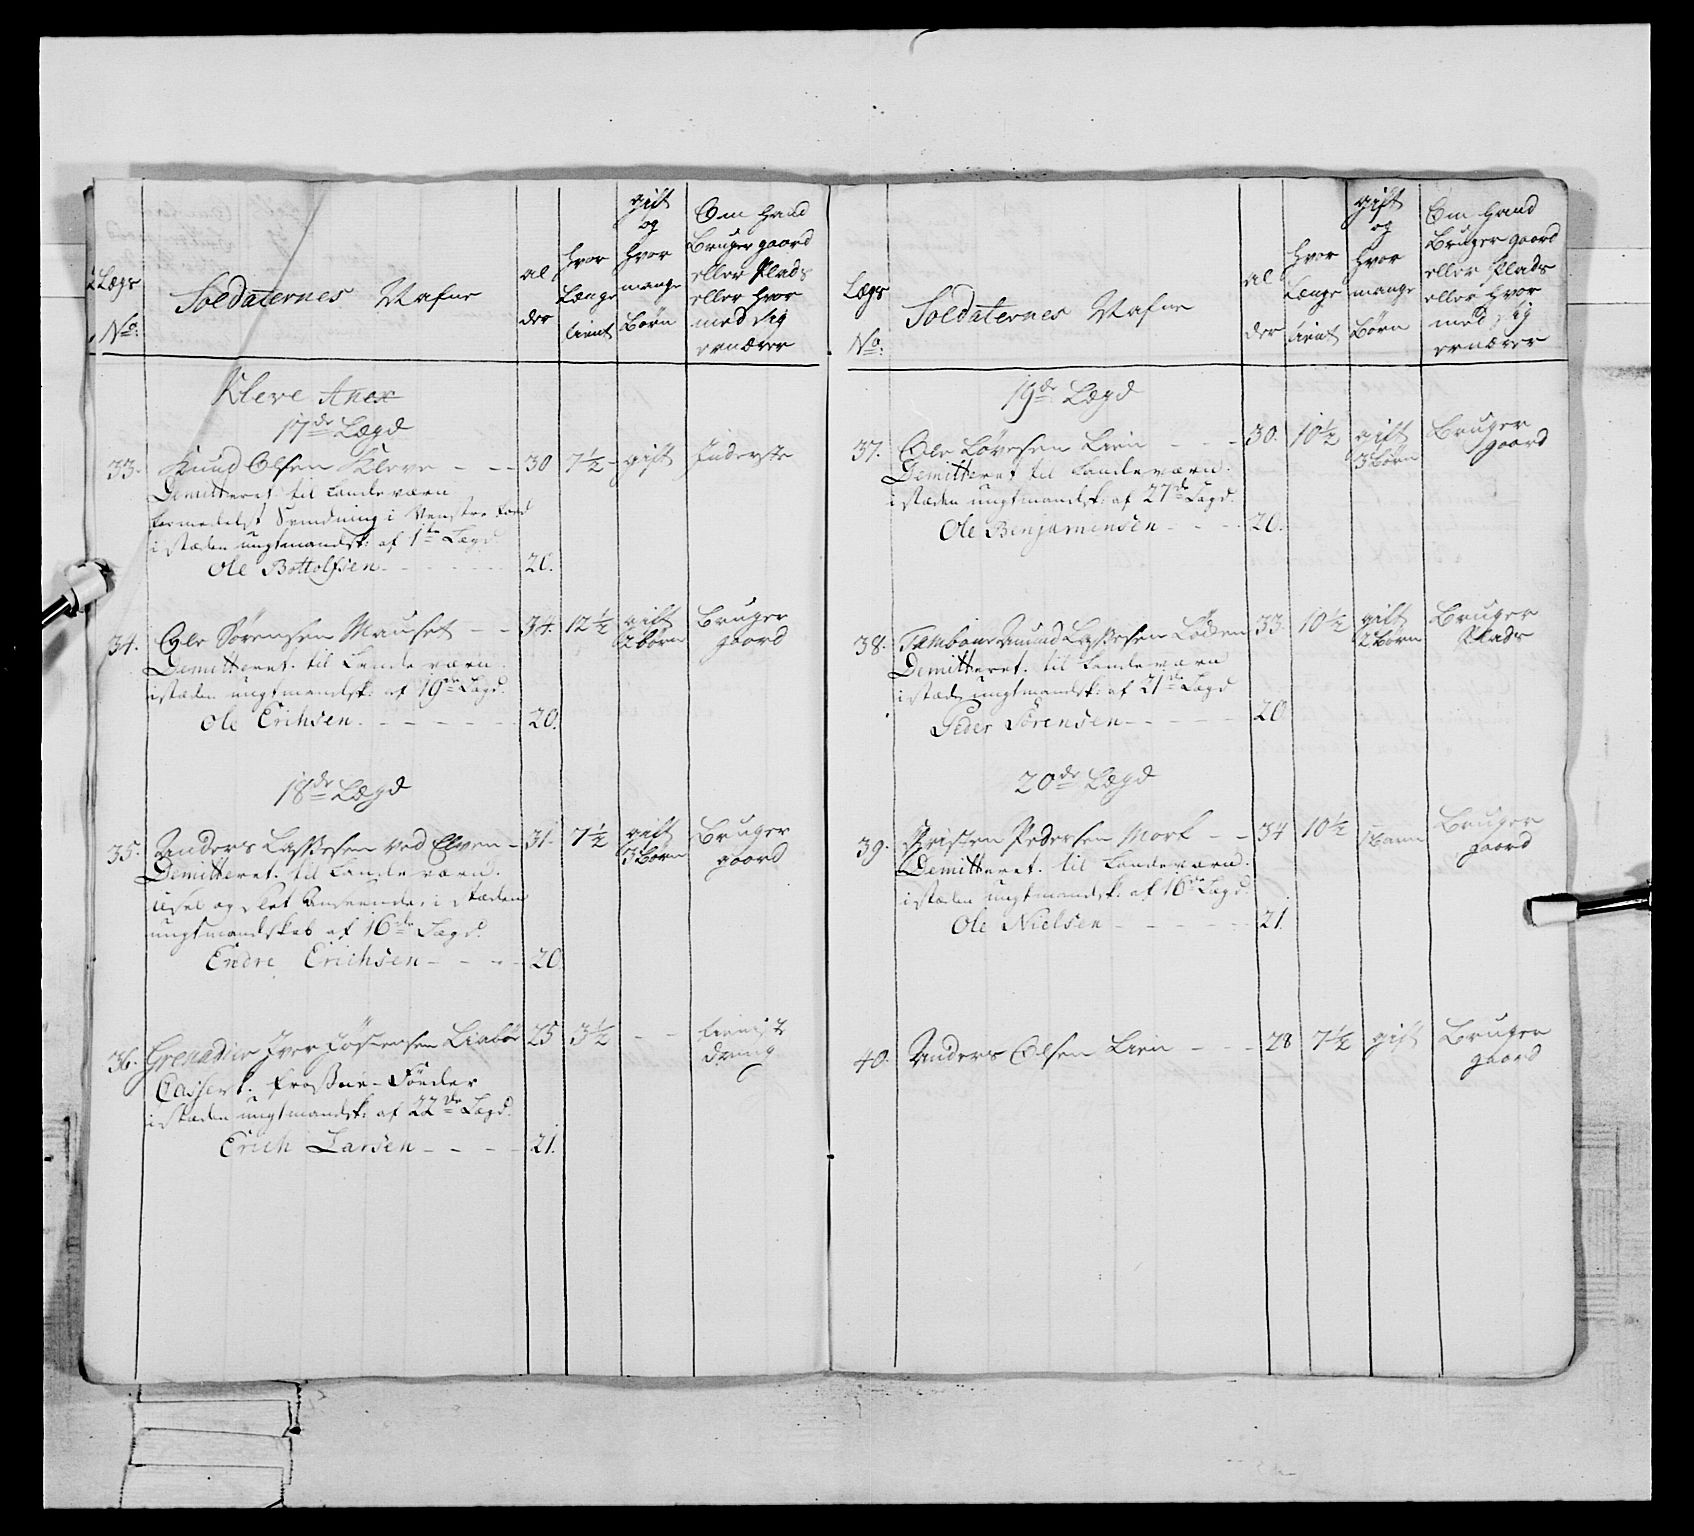 Lægs
No:
Soldaternes Nafne
al
der
hvor
Længe
tient
gift
og
hvor
mange
Börn
Om hand
Bruger gaard
eller Plads
eller hvor
med Sig
ernærer
Kleve Anex
17de Lægd
33. Knud Olsen Kleve - - - 30 7½ - gift Inderste
Demitteret til Landeværn
formedelst Svindning i Venstre
i stæden ungtmandsk: af 1te Lægd
Ole Bottolfsen - - - - 20.
34. Ole Sörensen Mauset - - 34. 12½ gift Bruger
2 börn gaard
Demitteret til Landeværn.
i stæden ungtmandsk: af 19de Lægd.
Ole Erichsen - - - - - 20.
18de Lægd
35. Anders Lassesen ved Elven - 31. 7½ gift Bruger
3 börn gaard
Demitteret til Landeværn.
og slet i stæden
ungtmandskab af 16de Lægd.
Endre Erichsen - - - - 20
36. Grenadeer Iver Liabö 25 3½ - - tieniste
dreng
Casseret
i stæden ungtmandsk: af 22de Lægd.
Erich Larsen - - - - 21.
Lægs
No:
Soldaternes Nafne
al
der
hver
Længe
tient
gift
og
hvor
mange
Börn
Om hand
Bruger gaard
eller Plads
eller hvor
med Sig
ernærer
19de Lægd
37. Ole Lien - - - 30. 10½ gift Bruger
3 Börn gaard
Demitteret til Landeværn.
i stæden ungtmandsk: af 27de Lægd.
Ole Benjamensen - - - - 20.
38. Tambour Amund Lassesen 33. 10½ gift Bruger
2 Börn Plads
Demitteret til Landeværn
i stæden ungtmandsk: af 21de Lægd
Peder Sörensen - - - - 20
20de Lægd
39. Christen Pedersen Mork - - 34 10½ Bruger
1 Barn gaard
Demitteret til Landeværn.
i stæden ungtmandsk: af 16de Lægd
Ole Nielsen - - - - - 21.
40. Anders Olsen Lien - - - 28 7½ gift Bruger
gaard